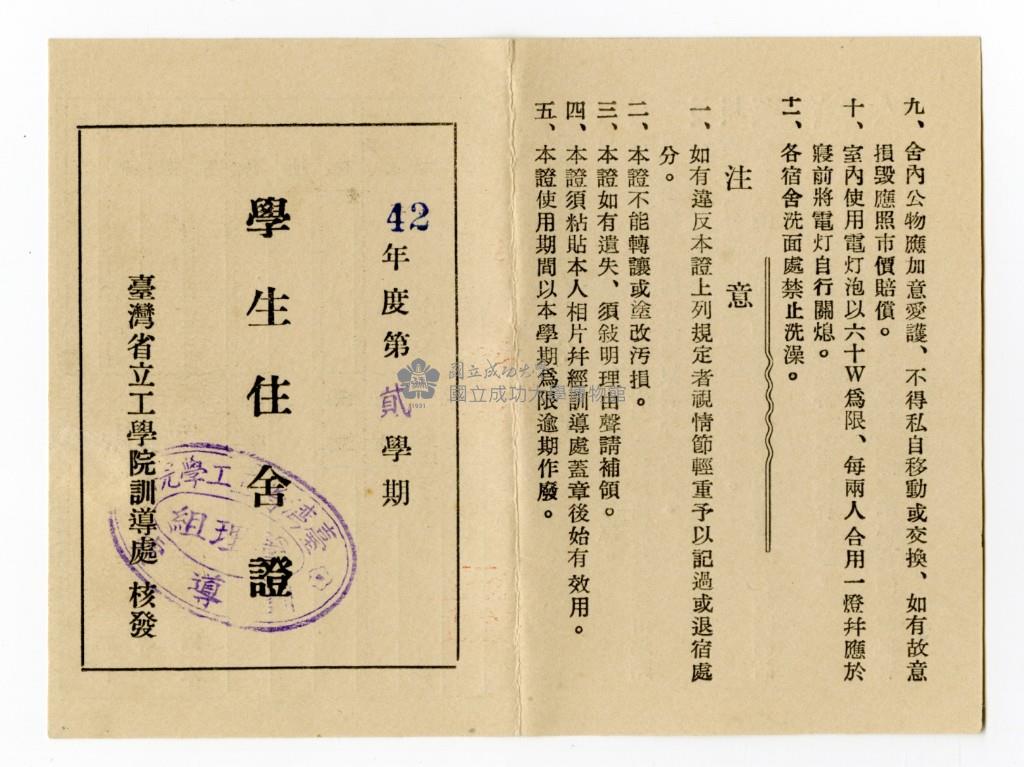 九、舍內公物應加意愛護、不得私自移動或交換、如有故意
損毀應照市價賠償。
十、室內使用電灯泡以六十W爲限、每兩人合用一燈幷應於
寢前將電灯自行關熄。
十一、各宿舍洗面處禁止洗澡。
注意
一、如有違反本證上列規定者視情節輕重予以記過或退宿處
分。
二、本證不能轉讓或塗改汚損。
三、本證如有遺失、須敍明理由聲請補領。
四、本證須粘貼本人相片幷經訓導處蓋章後始有效用。
五、本證使用期間以本學期爲限逾期作廢。
42年度第貳學期
學生住舍證
臺灣省立工學院訓導處核發
國立成功大學
國立成功大學博物館
1931